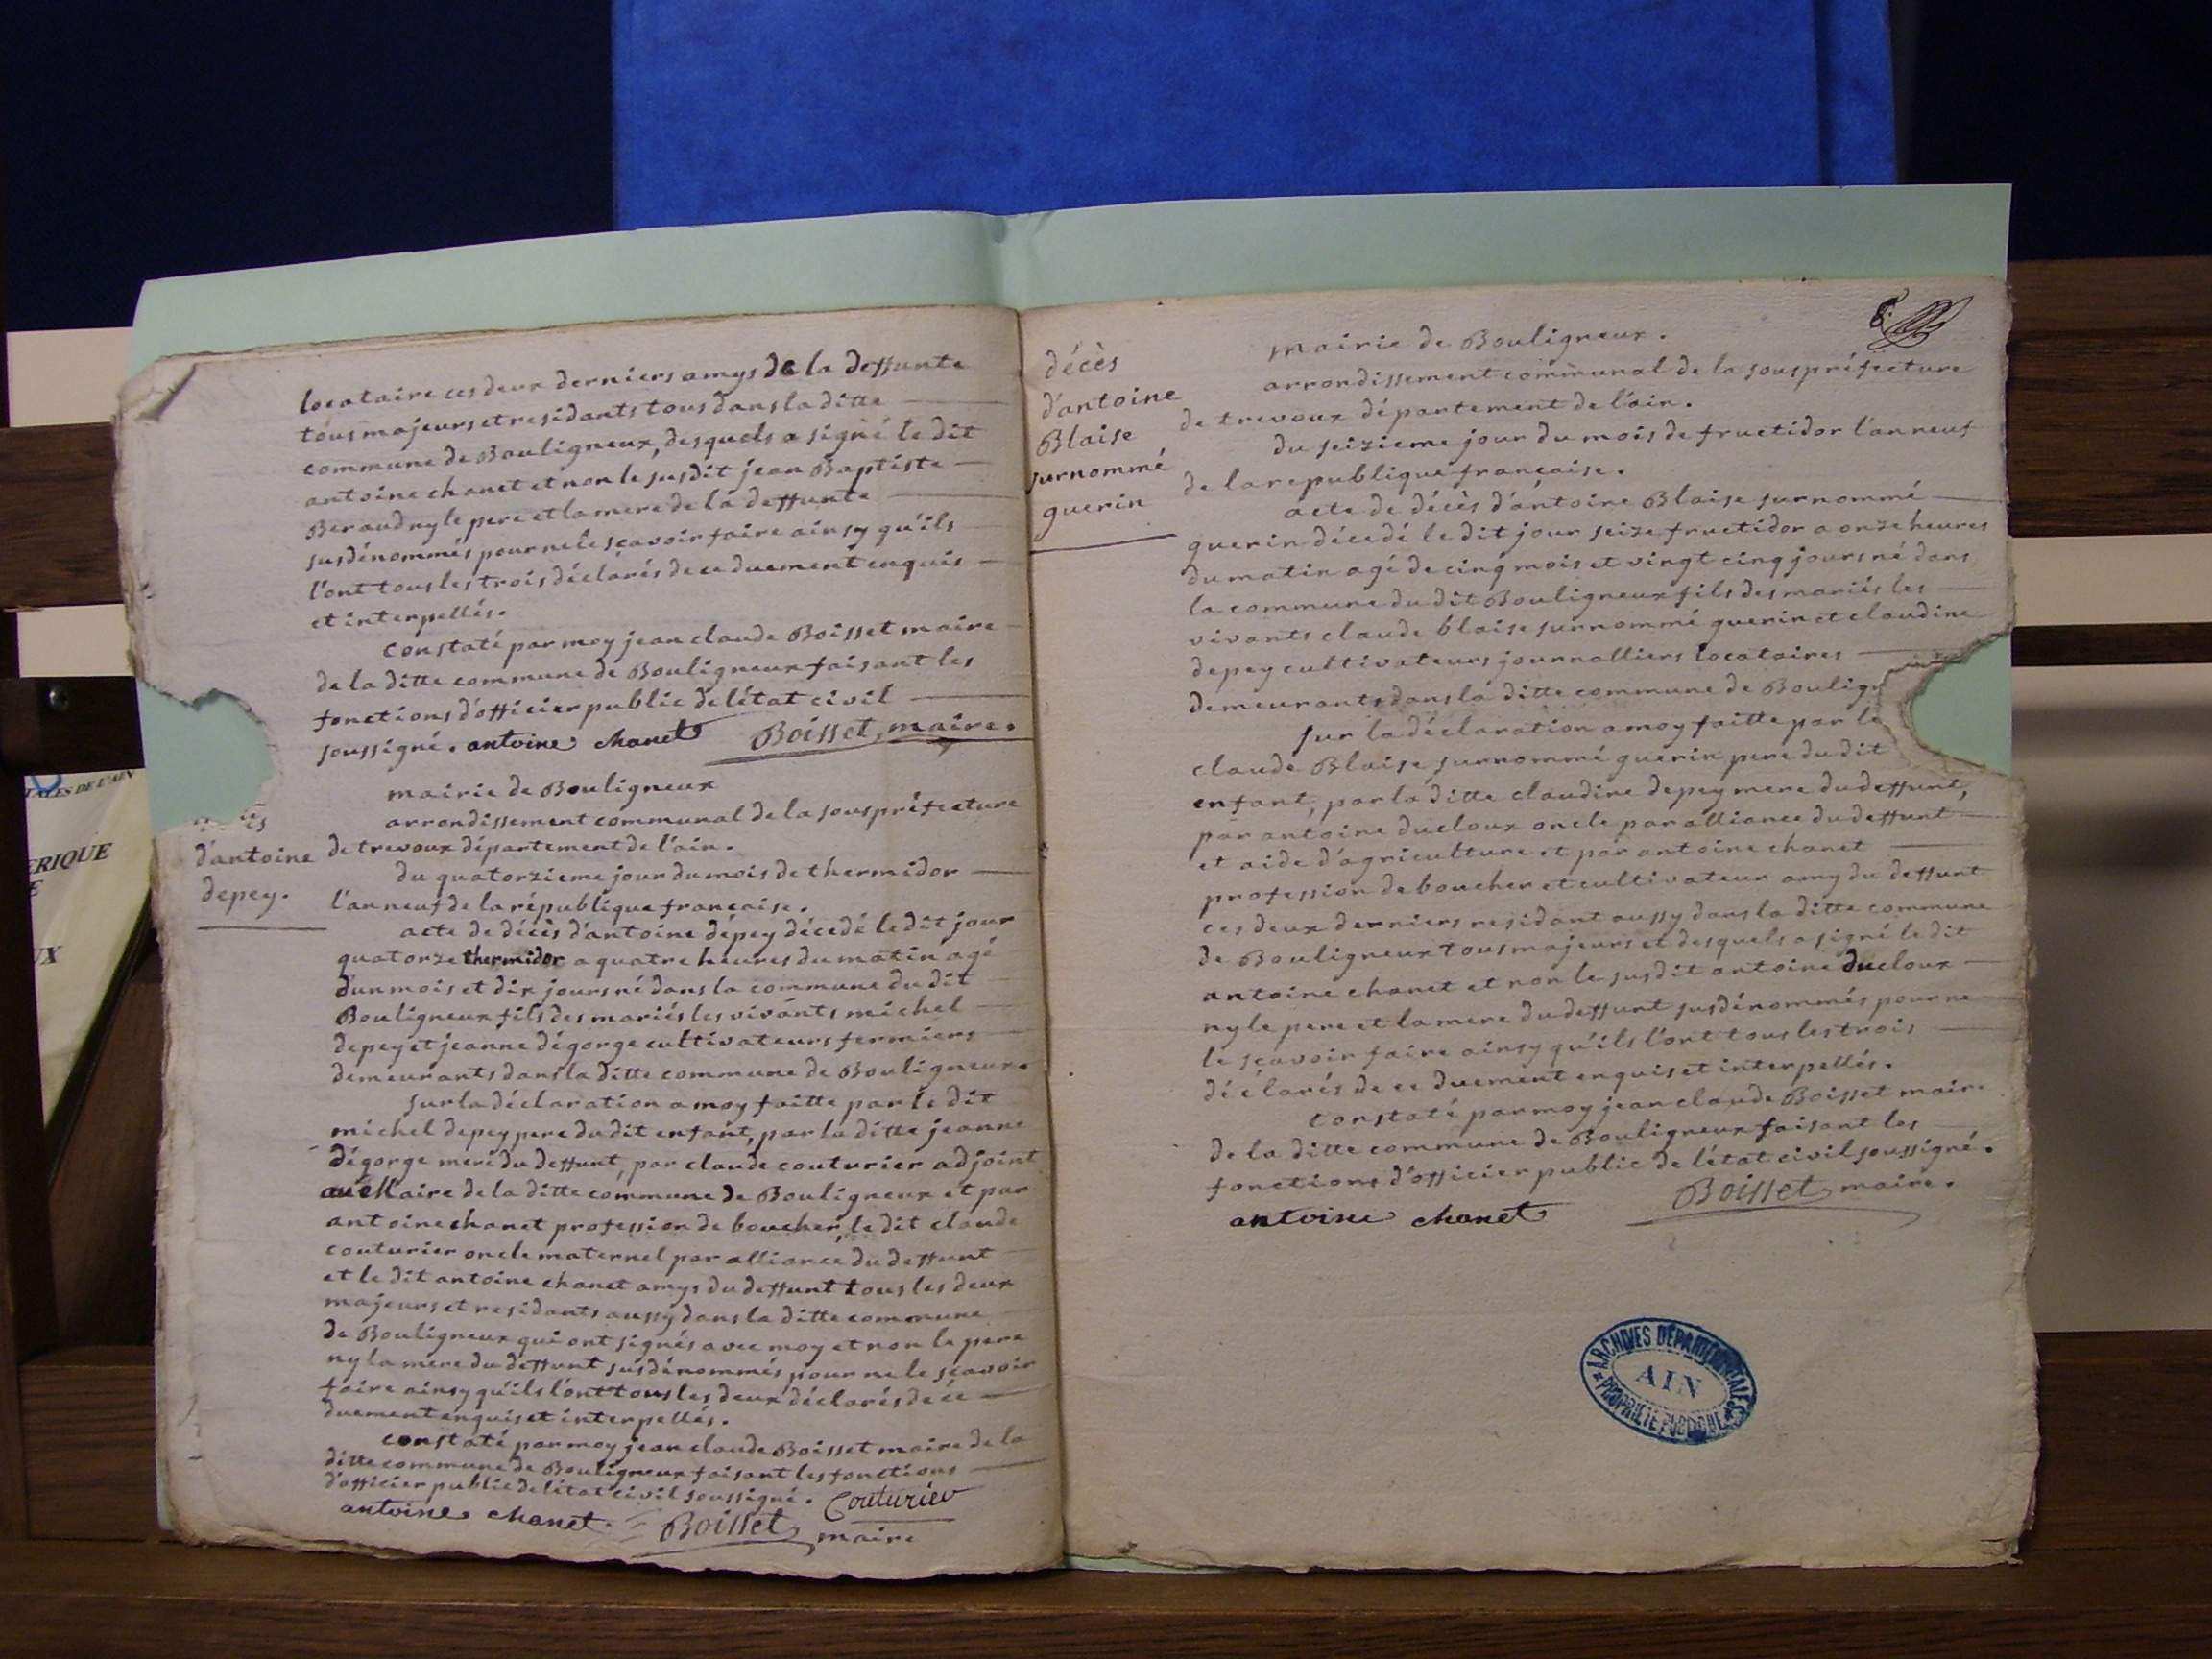 locataire ces deux derniers amys de la deffunte
tous majeurs et residants tous dans la ditte
commune de Bouligneux, desquels a signé le dit
antoine chanet et non le susdit jean Baptiste
Beraud ny le pere et la mere de la deffunte
susdénommés pour ne le sçavoir faire ainsy qu'ils
l'ont tous les trois déclarés de ce duement enquis
et interpellés.
constaté par moy jean claude Boisset maire
de la ditte commune de Bouligneux faisant les
fonctions d'officier public de l'état civil
soussigné. antoine chanet Boisset, maire.
d'antoine
depey.
mairie de Bouligneux
arrondissement communal de la souspréfecture
de trevoux département de l'ain.
du quatorzieme jour du mois de thermidor
l'an neuf de la république française.
acte de décès d'antoine depey décedé le dit jour
quatorze thermidor a quatre heures du matin agé
d'un mois et dix jours né dans la commune du dit
Bouligneux fils des mariés les vivants michel
depey et jeanne dégorge cultivateurs fermiers
demeurants dans la ditte commune de Bouligneux.
sur la déclaration a moy faitte par le dit
michel depey pere du dit enfant, par la ditte jeanne
dégorge mere du deffunt, par claude couturier adjoint
au Maire de la ditte commune de Bouligneux et par
antoine chanet profession de boucher, le dit claude
couturier oncle maternel par alliance du deffunt
et le dit antoine chanet amys du deffunt tous les deux
majeurs et residants aussy dans la ditte commune
de Bouligneux qui ont signés avec moy et non le pere
ny la mere du deffunt susdénommés pour ne le sçavoir
faire ainsy qu'ils l'ont tous les deux déclarés de ce
duement enquis et interpellés.
constaté par moy jean claude Boisset maire de la
ditte commune de Bouligneux faisant les fonctions
d'officier public de l'état civil soussigné. Couturier
antoine chanet. Boisset, maire
8.
décès
d'antoine
Blaise
surnommé
guerin
mairie de Bouligneux.
arrondissement communal de la souspréfecture
de trevoux département de l'ain.
du seizieme jour du mois de fructidor l'an neuf
de la republique française.
acte de décès d'antoine Blaise surnommé
guerin décedé le dit jour seize fructidor a onze heures
du matin agé de cinq mois et vingt cinq jours né dans
la commune du dit Bouligneux fils des mariés les
vivants claude blaise surnommé guerin et claudine
depey cultivateurs journalliers locataires
demeurants dans la ditte commune de Boulign
sur la déclaration a moy faitte par le
claude Blaise surnommé guerin pere du dit
enfant, par la ditte claudine depey mere du deffunt,
par antoine ducloux oncle par alliance du deffunt
et aide d'agriculture et par antoine chanet
profession de boucher et cultivateur amy du deffunt
ces deux derniers residant aussy dans la ditte commune
de Bouligneux tous majeurs et desquels a signé le dit
antoine chanet et non le susdit antoine ducloux
ny le pere et la mere du deffunt susdénommés pour ne
le sçavoir faire ainsy qu'ils l'ont tous les trois
déclarés de ce duement enquis et interpellés.
constaté par moy jean claude Boisset maire
de la ditte commune de Bouligneux faisant les
fonctions d'officier public de l'état civil soussigné.
antoine chanet Boisset, maire.
ARCHIVES DÉPARTEMENTALES
AIN
PROPRIÉTÉ PUBLIQUE
DE L'AIN
ERIQUE
E
UX